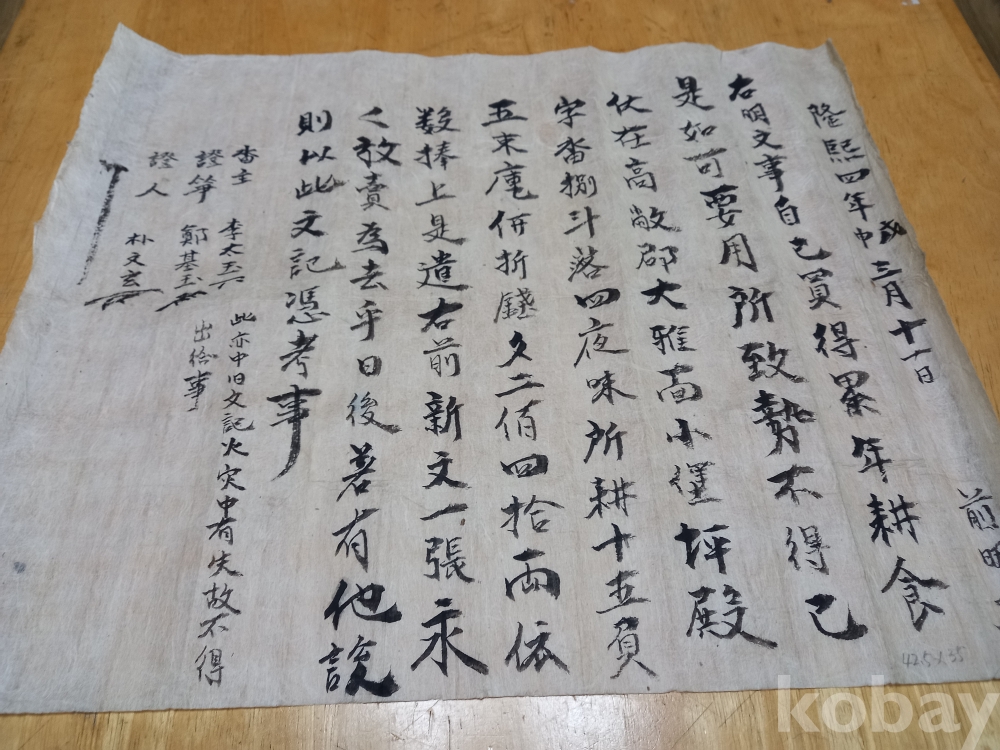 隆熙四年 三月十一日
前明
右明文事自己買得累年耕食
是如可要用所致勢不得已
伏在高敞郡大雅面小 坪殿
字畓捌斗落四夜味所耕十五負
五束庫 折錢文二佰四拾兩依
数捧上是遣右前新文一張永
々放賣爲去乎日後若有他說
則以此文記憑考事
畓主 李太玉
證筆 鄭基玉
證人 朴文玄
此亦中旧文記火灾中有失故不得
出給事
42.5 x 35
kobay